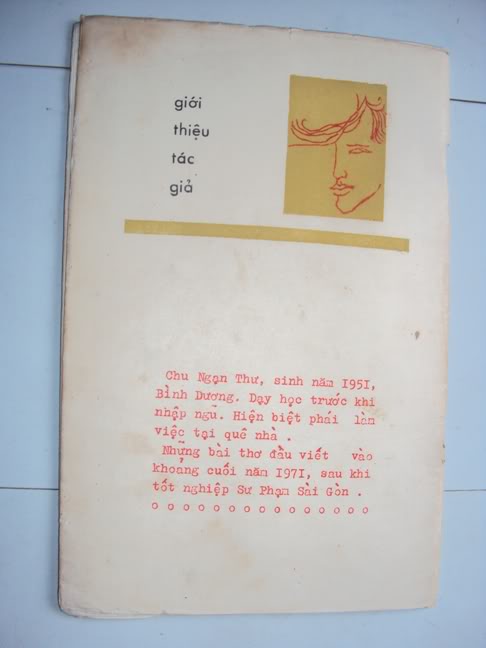 giới
thiệu
tác
giả
Chu Ngạn Thư, sinh năm 1951,
Bình Dương. Dạy học trước khi
nhập ngũ. Hiện biệt phái làm
việc tại quê nhà .
Những bài thơ đầu viết vào
khoảng cuối năm 1971, sau khi
tốt nghiệp Sư Phạm Sài Gòn .
o o o o o o o o o o o o o o o